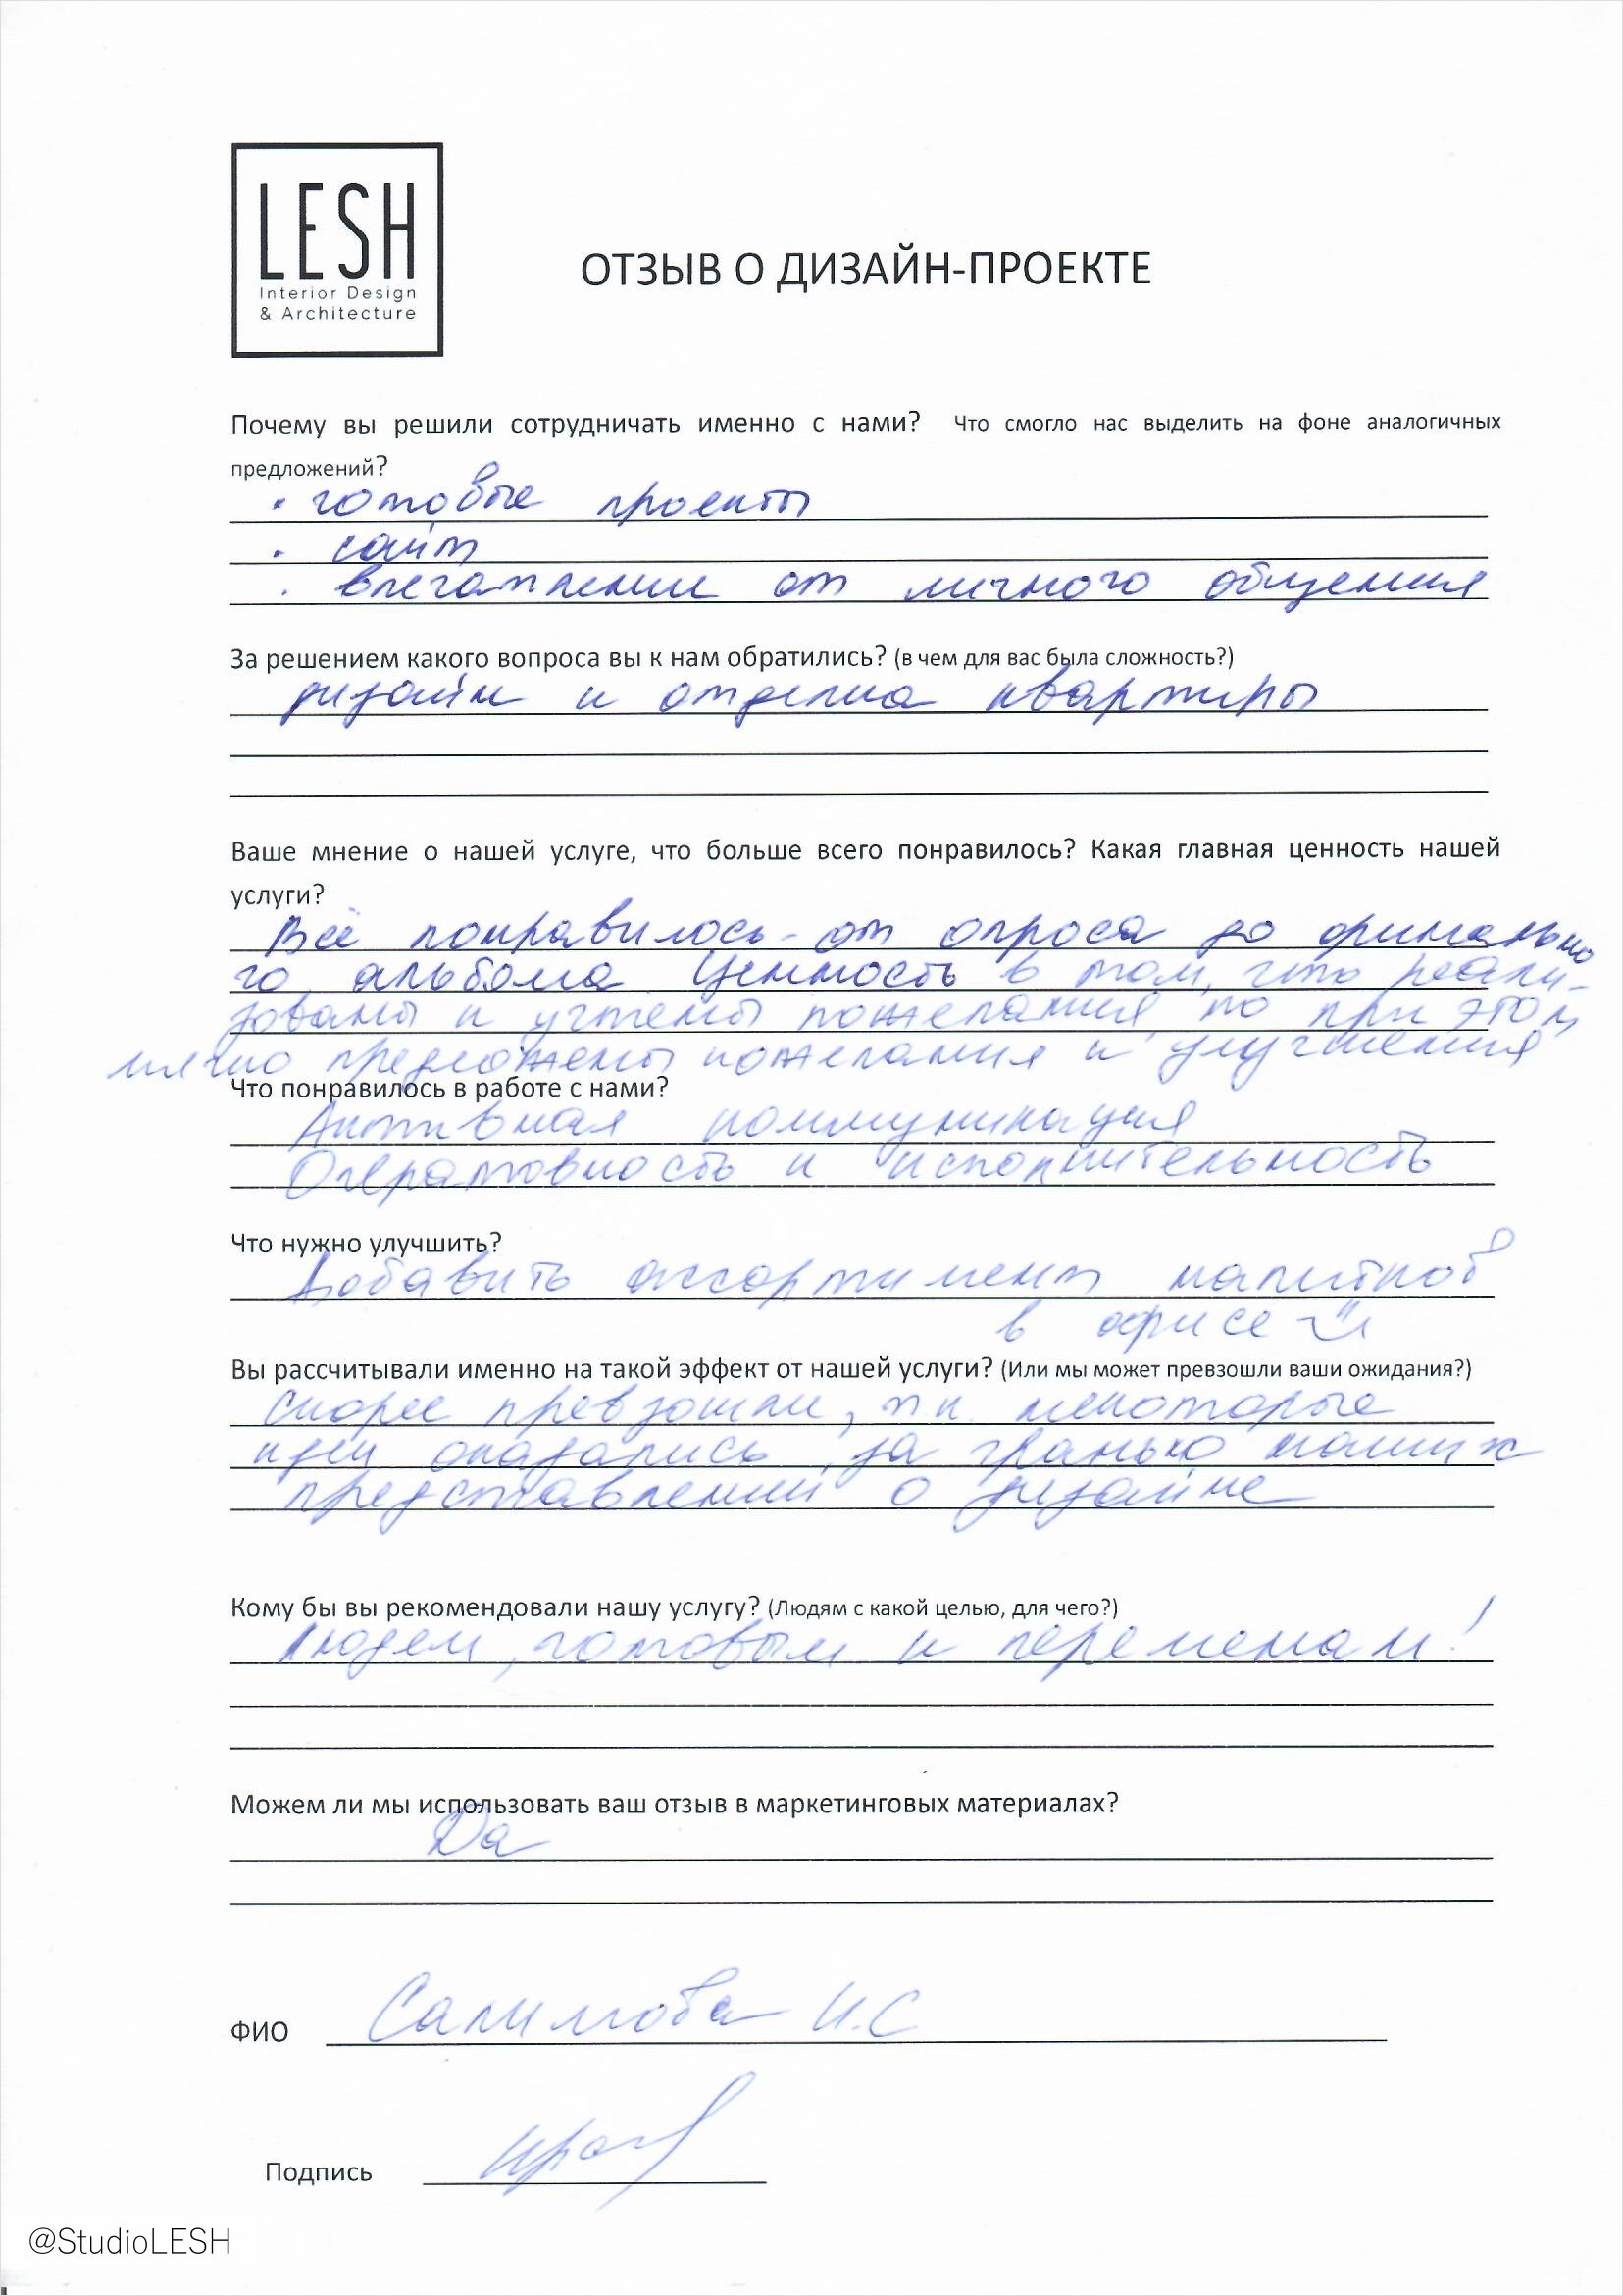 LESH
Interior Design
& Architecture
ОТЗЫВ О ДИЗАЙН-ПРОЕКТЕ
Почему вы решили сотрудничать именно с нами? Что смогло нас выделить на фоне аналогичных
предложений?
• готовые проекты
• сайт
• впечатлении от личного общения
За решением какого вопроса вы к нам обратились? (в чем для вас была сложность?)
дизайн и отделка квартиры
Ваше мнение о нашей услуге, что больше всего понравилось? Какая главная ценность нашей
услуги?
Всё понравилось - от опроса до финально
го альбома. Ценность в том, что реали-
зованы и учтены пожелания, но при этом
мягко предложены пожелания и улучшения
Что понравилось в работе с нами?
Активная коммуникация
Оперативность и исполнительность
Что нужно улучшить?
Добавить ассортимент напитков
в офисе
Вы рассчитывали именно на такой эффект от нашей услуги? (Или мы может превзошли ваши ожидания?)
Скорее превзошли, тк некоторые
идеи оказались за гранью наших
представлений о дизайне
Кому бы вы рекомендовали нашу услугу? (Людям с какой целью, для чего?)
Людям, готовым к переменам!
Можем ли мы использовать ваш отзыв в маркетинговых материалах?
Да
ФИО Салимова И.С
Подпись
@StudioLESH